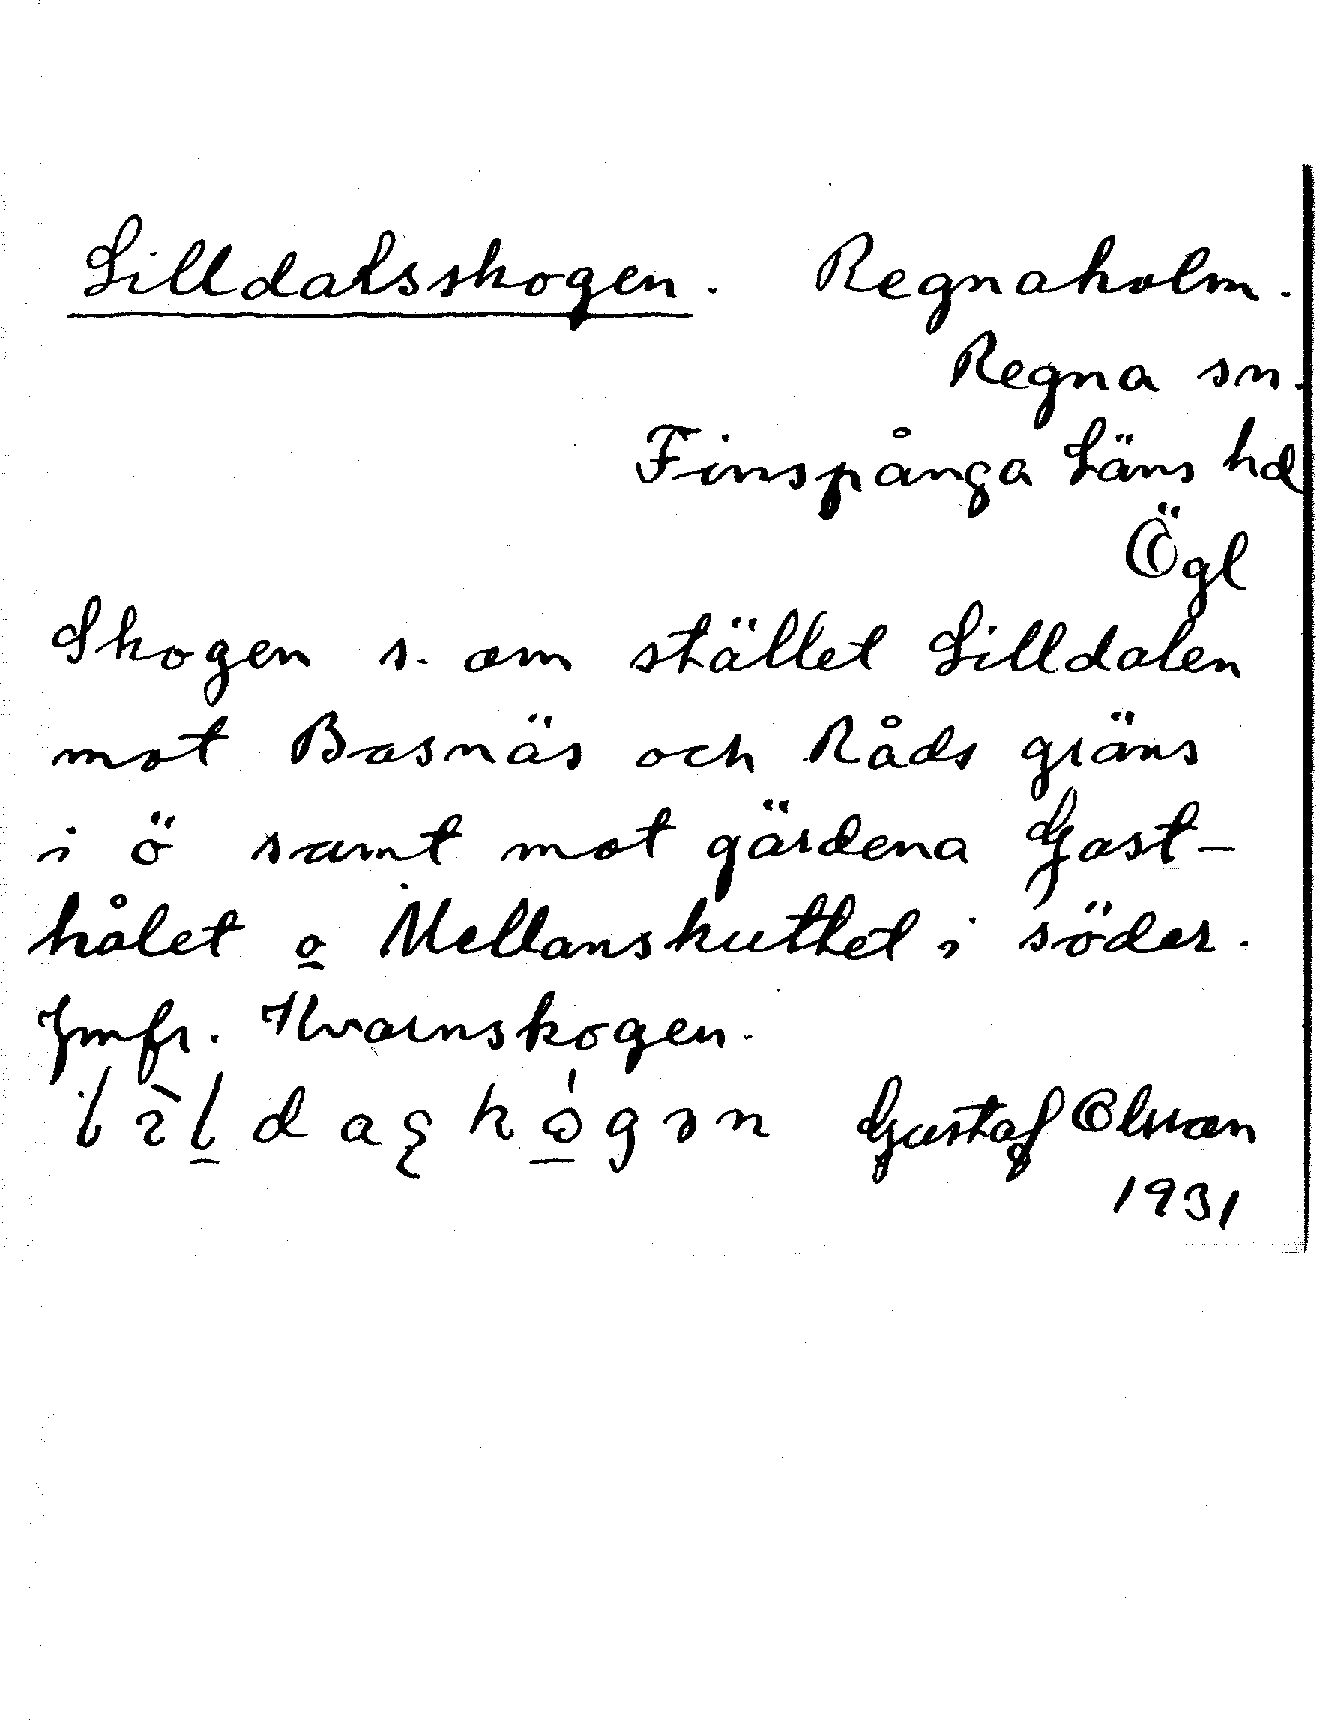 Lilldalsskogen. Regnaholm.
Regna sn.
Finspånga Läns hd
Ögl
Skogen s. om stället Lilldalen
mot Basnäs och Råds gräns
i ö samt mot gärdena Gast-
hålet o Mellanskuttet i söder.
Jmfr. Kvarnskogen.
Gustaf Olsson
1931